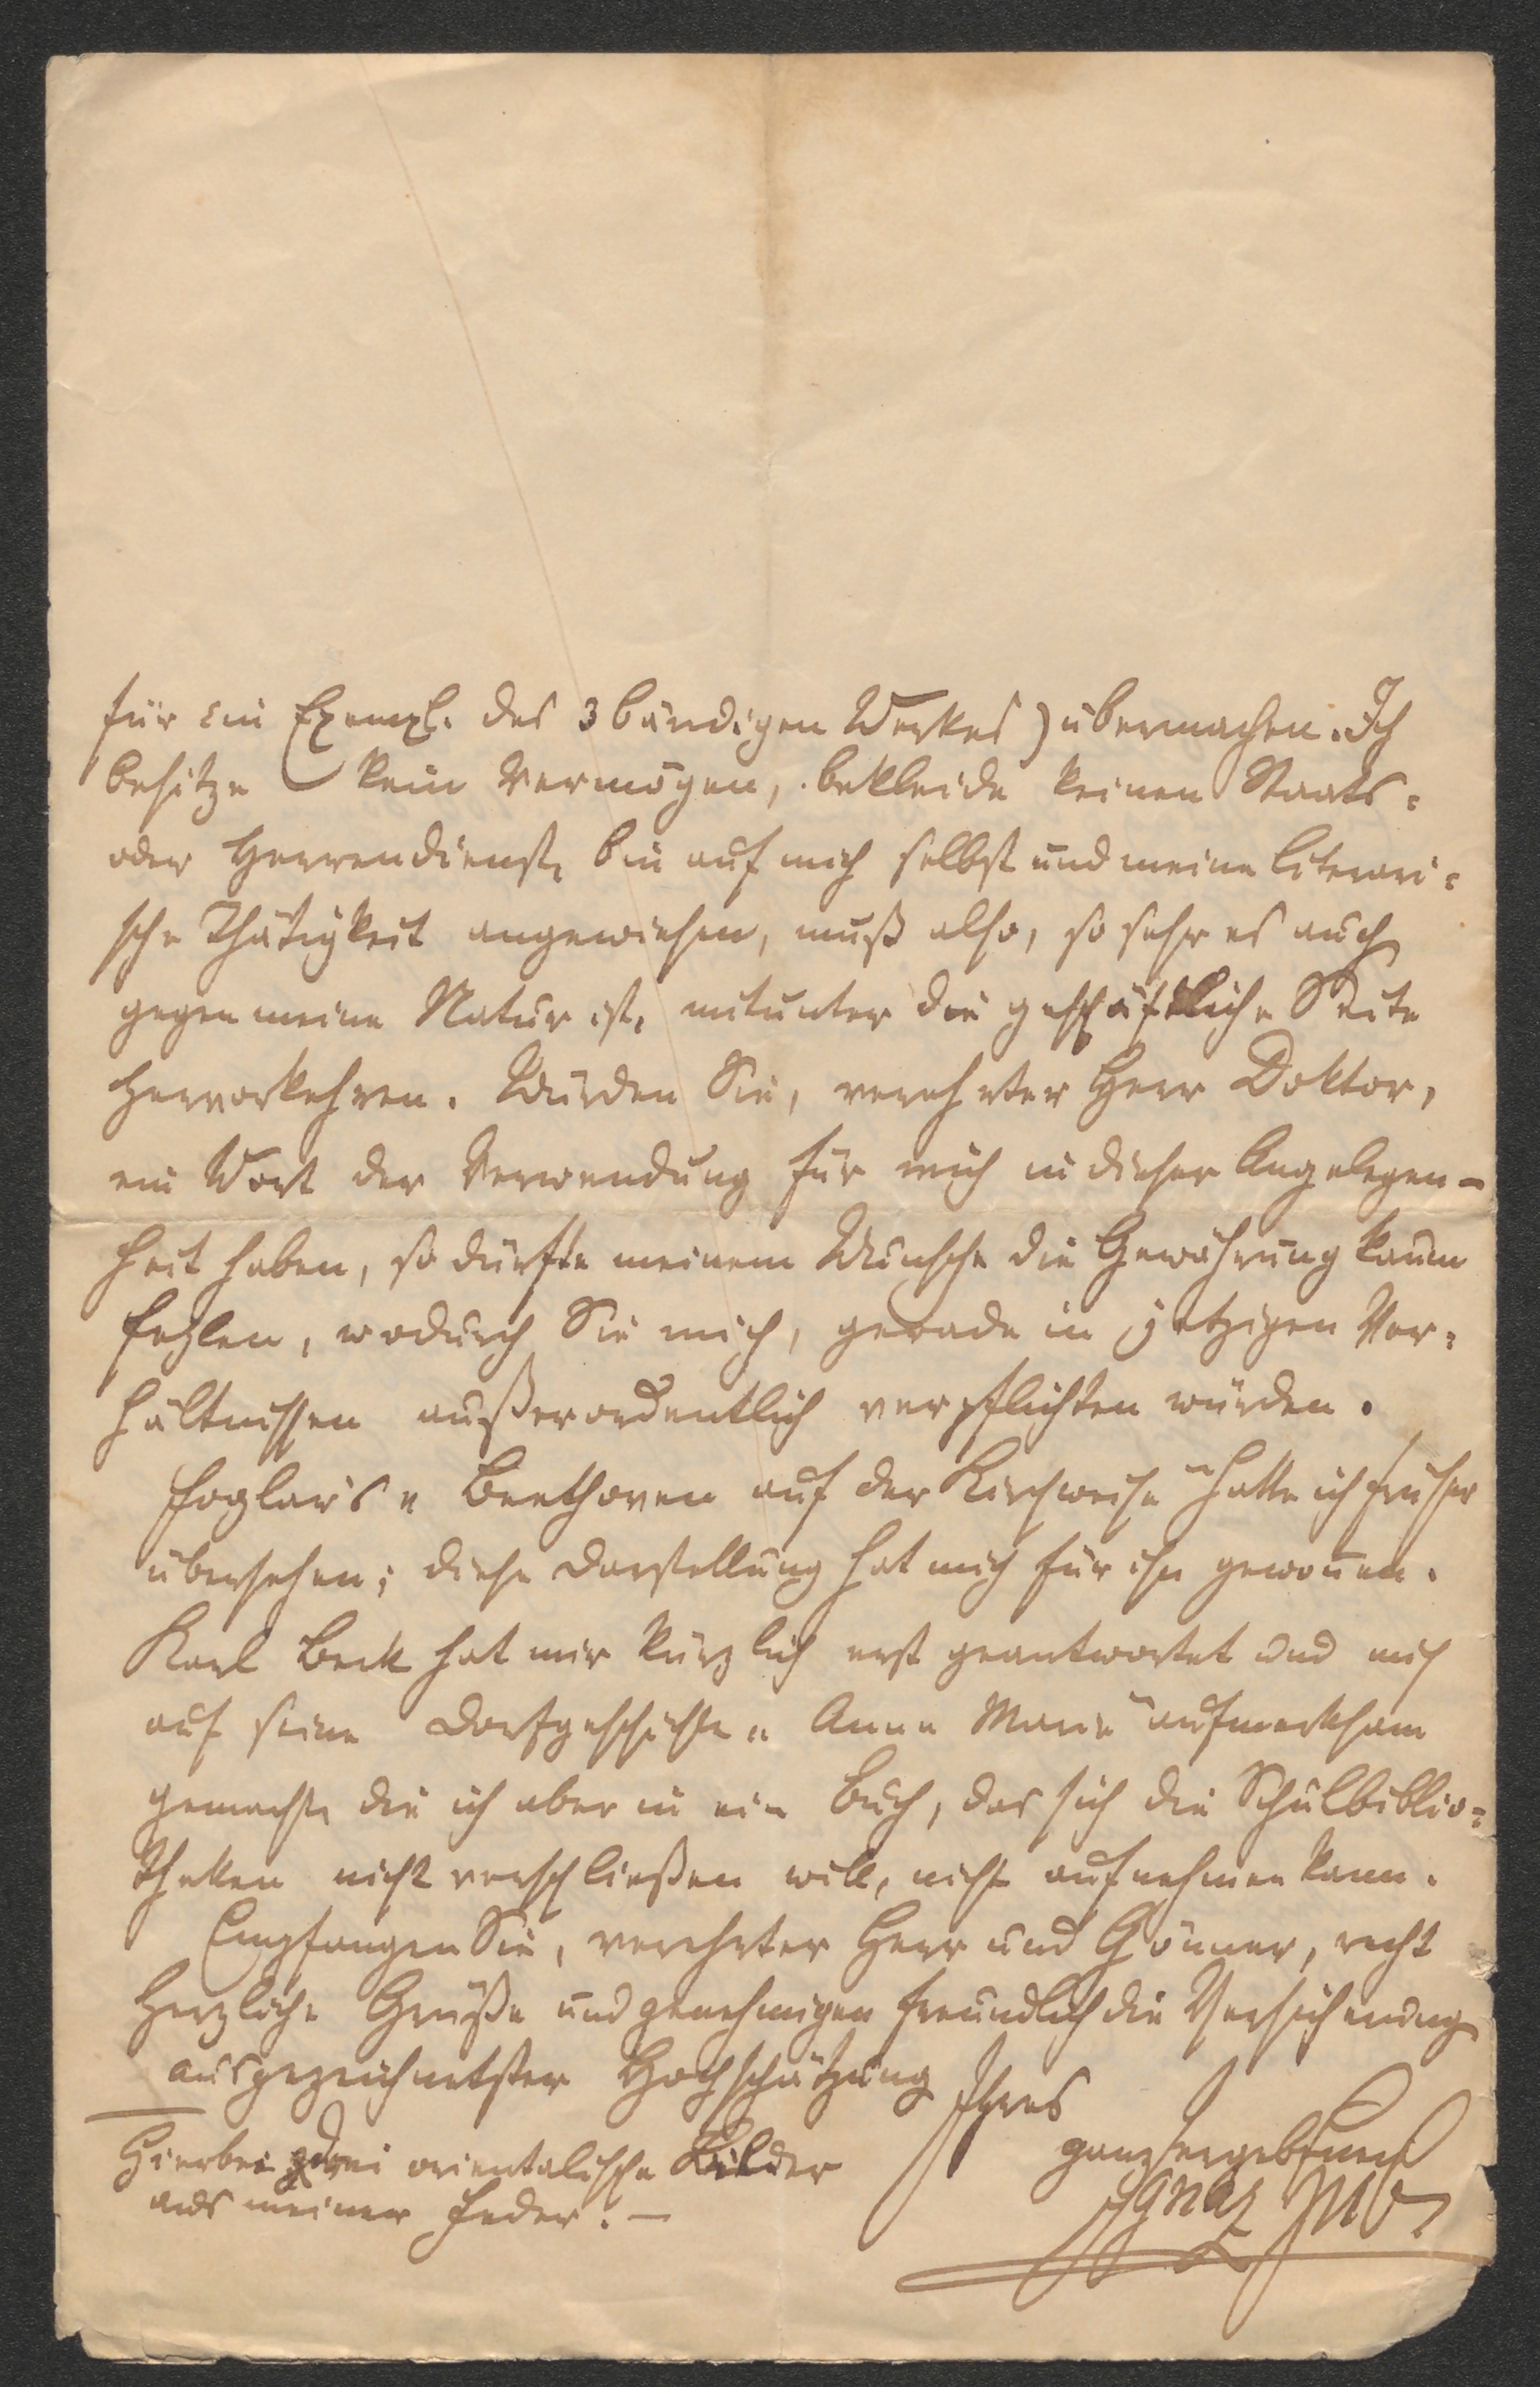 für ein Exempl. des 3 bändigen Werkes) übermachen. Ich
besitze kein Vermögen, bekleide keinen Staats-
oder Herrendienst, bin auf mich selbst und meine literari-
sche Thätigkeit angewiesen, muß also, so sehr es auch
gegen meine Natur ist, mitunter die geschäftliche Seite
hervorkehren. Würden Sie, verehrter Herr Doktor,
ein Wort der Verwendung für mich in dieser Angelegen-
heit haben, so dürfte meinem Wunsche die Gewährung kaum
fehlen, wodurch Sie mich, gerade in jetzigen Ver-
hältnissen außerordentlich verpflichten würden.
Foglar's „Beethoven auf der Kirchweihe“ hatte ich früher
übersehen; diese Darstellung hat mich für ihn gewon̄en.
Karl Beck hat mir kürzlich erst geantwortet und mich
auf seine Dorfgeschichte „Anna Marie“ aufmerksam
gemacht, die ich aber in ein Buch, das sich die Schulbiblio-
theken nicht verschließen will, nicht aufnehmen kann.
Empfangen Sie, verehrter Herr und Gönner, recht
herzliche Grüße und genehmigen freundlich die Versicherung
ausgezeichnetster Hochschätzung Ihres
ganz ergebenen
Ignaz
Hierbei zwei orientalische Bilder
aus meiner Feder. —